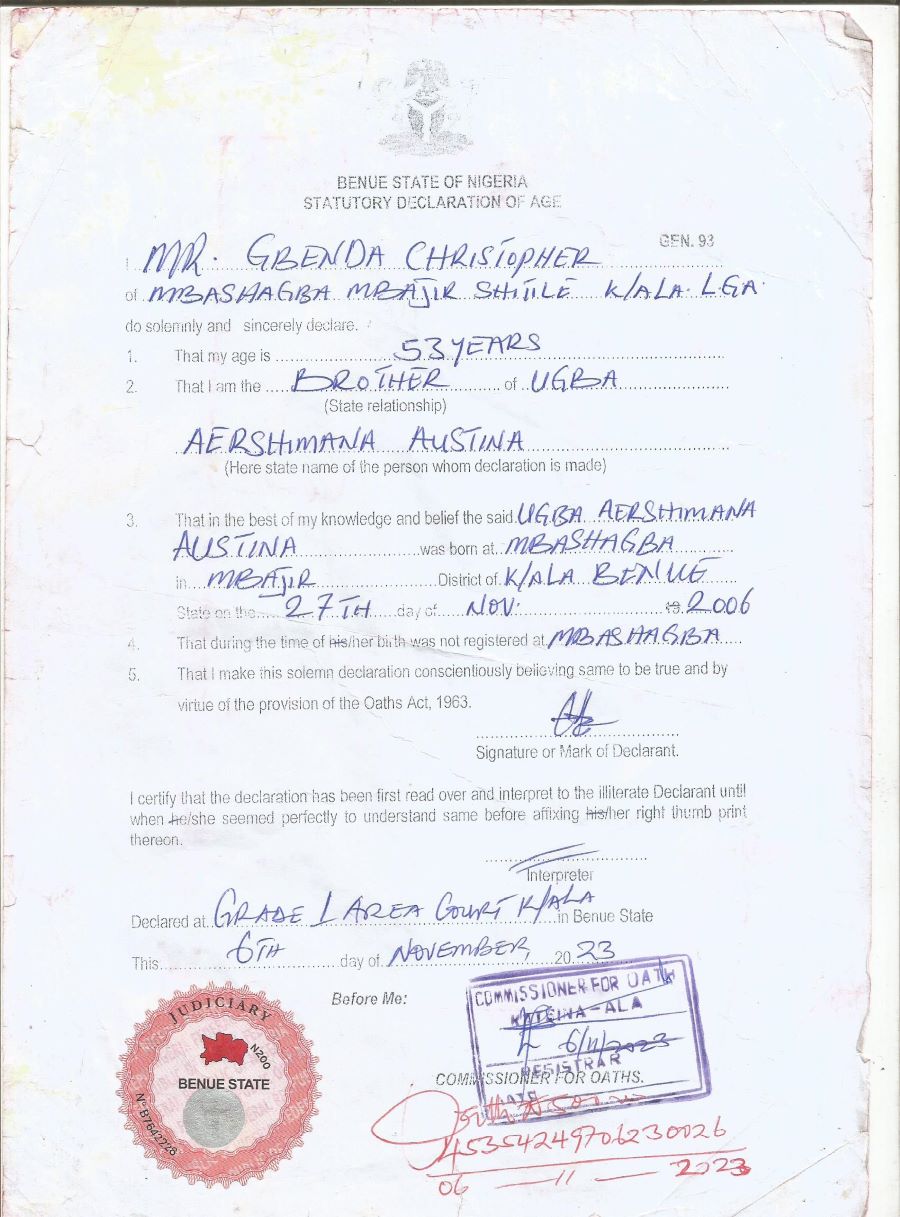 BENUE STATE OF NIGERIA
STATUTORY DECLARATION OF AGE
GEN. 93
I MR. GBENDA CHRISTOPHER
of MBASHAGBA MBAJIR SHITILE K/ALA. L.G.A.
do solemnly and sincerely declare.
1. That my age is 53 YEARS
2. That I am the BROTHER of UGBA
(State relationship)
AERSHIMANA AUSTINA
(Here state name of the person whom declaration is made)
3. That in the best of my knowledge and belief the said UGBA AERSHIMANA
AUSTINA was born at MBASHAGBA
in MBAJIR District of K/ALA BENUE
State on the 27TH day of NOV. 19 2006
4. That during the time of his/her birth was not registered at MBASHAGBA
5. That I make this solemn declaration conscientiously believing same to be true and by
virtue of the provision of the Oaths Act, 1963.
Signature or Mark of Declarant.
I certify that the declaration has been first read over and interpret to the illiterate Declarant until
when he/she seemed perfectly to understand same before affixing his/her right thumb print
thereon.
Interpreter
Declared at GRADE I AREA COURT K/ALA in Benue State
This 6TH day of NOVEMBER, 2023
Before Me:
COMMISSIONER FOR OATH
KATSINA-ALA
6/11/2023
REGISTRAR
DATE
COMMISSIONER FOR OATHS.
JUDICIARY
N200
BENUE STATE
Nº B7642226
45354249706230026
06 — 11 — 2023